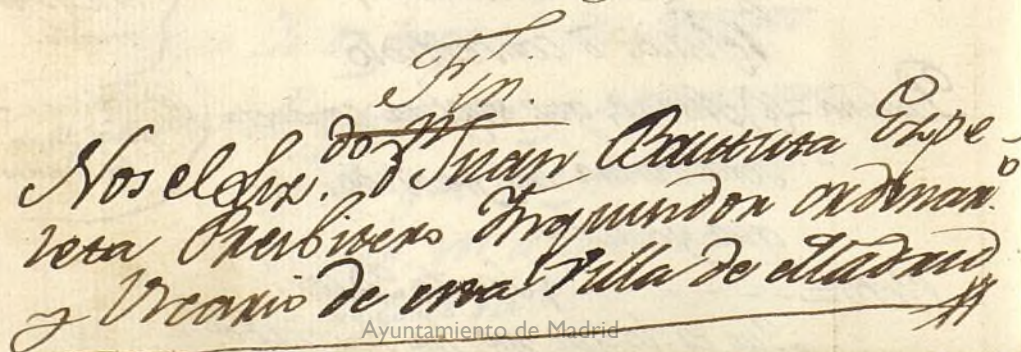 Fin.
Nos el Liz.do Dn Juan Bautista Ezpe-
leta Presbitero Inquisidor ordinar.o
y Vicario de esta Villa de Madrid
Ayuntamiento de Madrid